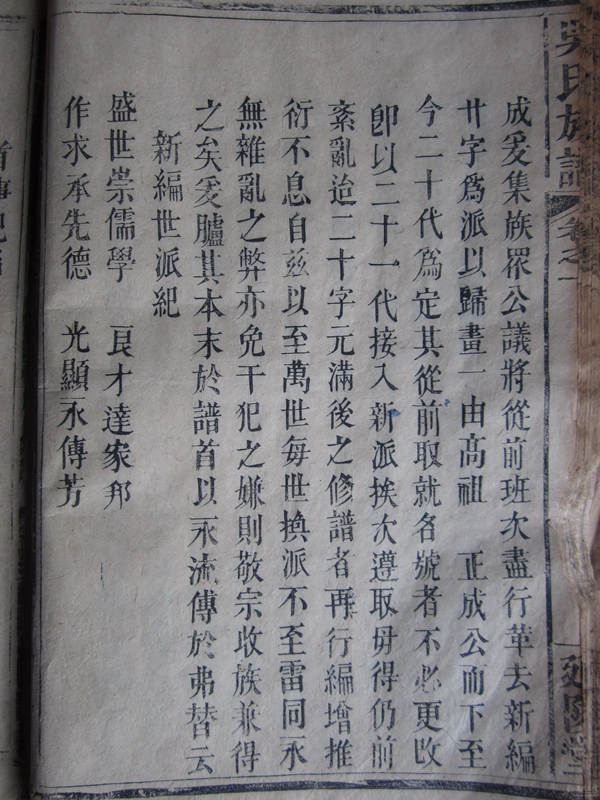 吳氏族譜 卷之一
成爰集族眾公議將從前班次盡行革去新編
廿字爲派以歸畫一由高祖 正成公而下至
今二十代爲定其從前取就名號者不必更改
卽以二十一代接入新派挨次遵取毋得仍前
紊亂迨二十字元滿後之修譜者再行編增推
衍不息自茲以至萬世每世換派不至雷同永
無雜亂之弊亦免干犯之嫌則敬宗收族兼得
之矣爰臚其本末於譜首以永流傳於弗替云
新編世派紀
盛世崇儒學 良才達家邦
作求承先德 光顯永傳芳